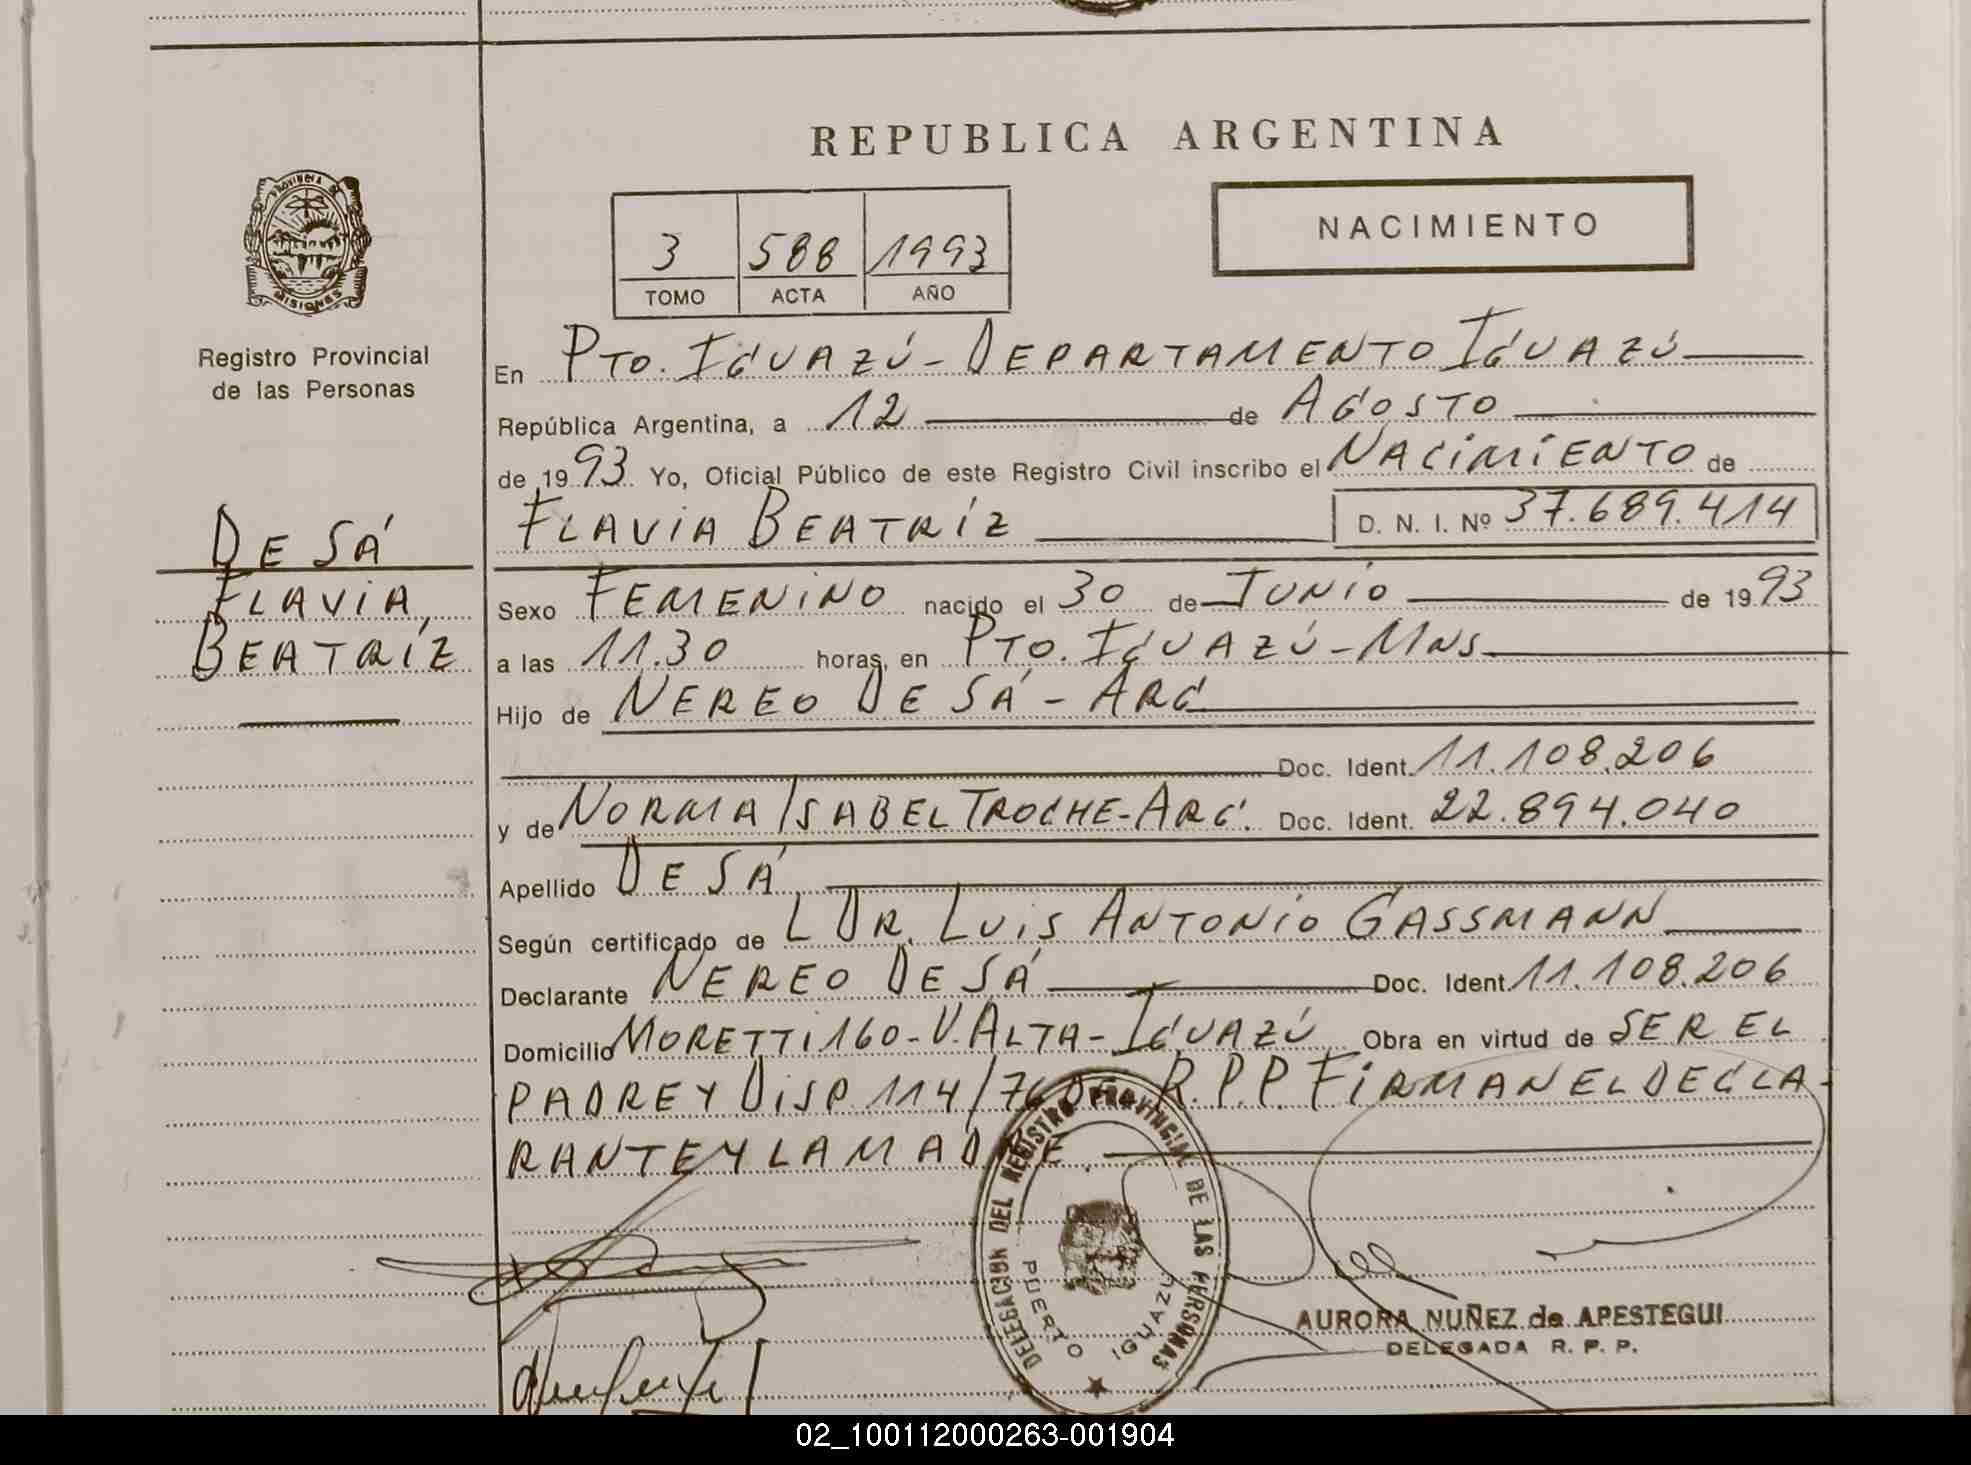 REPUBLICA ARGENTINA
PROVINCIA DE
MISIONES
Registro Provincial
de las Personas
3 588 1993
TOMO ACTA AÑO
NACIMIENTO
En PTO. IGUAZÚ - DEPARTAMENTO IGUAZÚ
República Argentina, a 12 de AGOSTO
de 1993 Yo, Oficial Público de este Registro Civil inscribo el NACIMIENTO de
FLAVIA BEATRÍZ D. N. I. Nº 37.689.414
DE SÁ
FLAVIA
BEATRÍZ
Sexo FEMENINO nacido el 30 de JUNIO de 1993
a las 11.30 horas, en PTO. IGUAZÚ - MNS
Hijo de NEREO DE SÁ - ARG.
Doc. Ident. 11.108.206
y de NORMA ISABEL TROCHE - ARG. Doc. Ident. 22.894.040
Apellido DE SÁ
Según certificado de L DR. LUIS ANTONIO GASSMANN
Declarante NEREO DE SÁ Doc. Ident. 11.108.206
Domicilio MORETTI 160 - V. ALTA - IGUAZÚ Obra en virtud de SER EL
PADRE Y DISP. 114/76 R.P.P. FIRMAN EL DECLA-
RANTE Y LA MADRE.
DELEGACION DEL REGISTRO PROVINCIAL DE LAS PERSONAS
PUERTO IGUAZU
AURORA NUÑEZ de APESTEGUI
DELEGADA R. P. P.
02_100112000263-001904